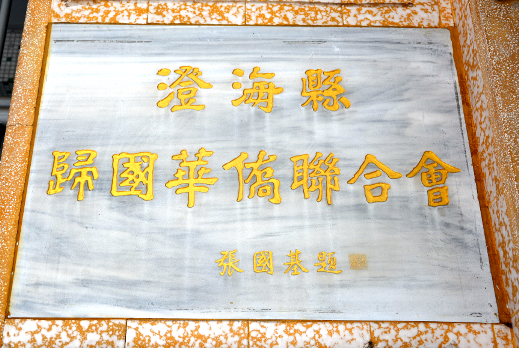 澄海縣
歸國華僑聯合會
張國基題